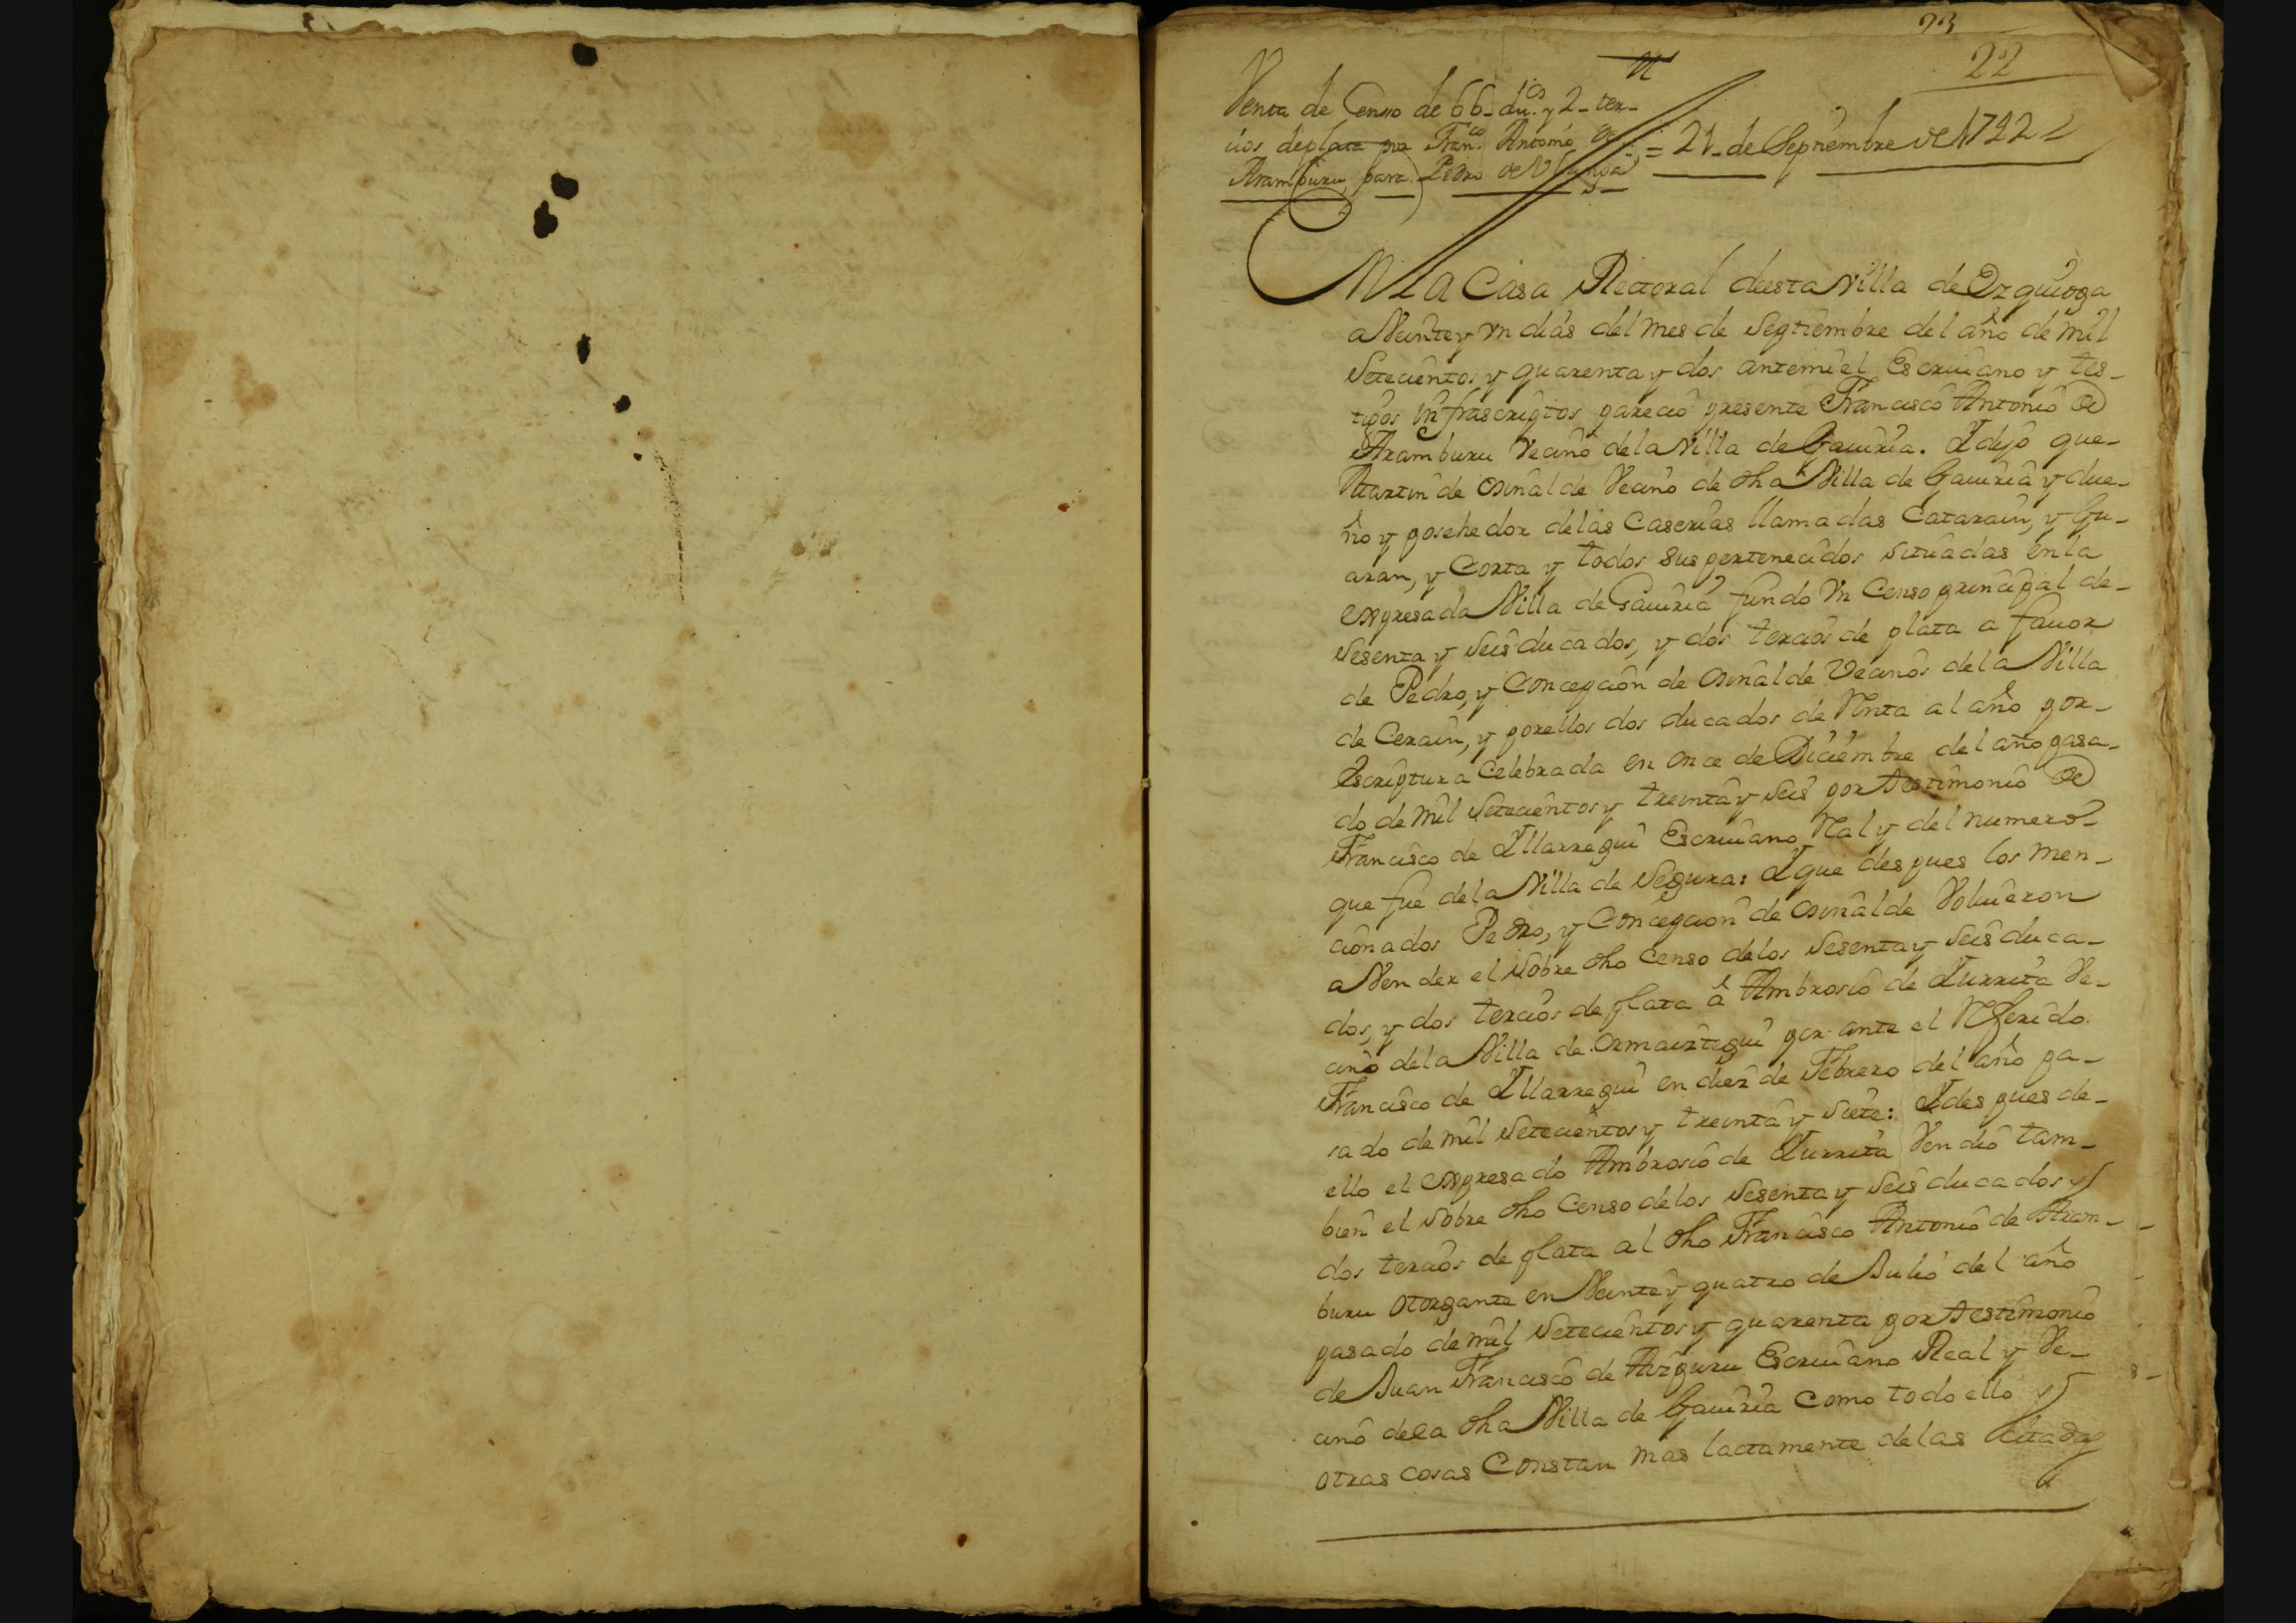 23
22
Venta de Censo de 66_ du.os y 2_ ter_
cios de plata por Fran.co Antonio de
Aramburu, para Pedro de
= 21_ de Septiembre de 1742
En la Casa Rectoral deesta Villa de Ezquioga
a Veinte y un dias del mes de Septiembre del año de mil
Setecientos y quarenta y dos antemi el Escriuano y tes_
tigos infrascriptos parecio presente Francisco Antonio de
Aramburu Vecino dela Villa de Gauiria. I dijo que_
Martin de Osinalde Vecino de dha Villa de Gauiria y due_
ño y posehedor delas Caserias llamadas Catarain, y Gu_
aran, y Corta y todos sus pertenecidos situadas en la
expresada Villa de Gauiria fundo Vn Censo principal de_
Sesenta y Seis ducados, y dos tercios de plata a fauor
de Pedro, y Concepcion de Osinalde Vecinos dela Villa
de Cerain, y porellos dos ducados de Renta al año por_
escriptura Celebrada en once de Diciembre del año pasa_
do de mil Setecientos y treinta y Seis por testimonio de
Francisco de Yllarregui Escriuano Real y del numero_
que fue dela Villa de Segura: I que despues los men_
cionados Pedro, y Concepcion de Osinalde Voluieron
a Vender el Sobre dho Censo delos Sesenta y Seis duca_
dos, y dos tercios de plata â Ambrosio de Iurrita Ve_
cino dela Villa de Ormaiztegui por ante el Referido
Francisco de Yllarregui en diez de Febrero del año pa_
sado de mil Setecientos y treinta y Siete: I despues de_
ello el expresado Ambrosio de Iurrita Vendio tam_
bien el Sobre dho Censo delos Sesenta y Seis ducados y
dos tercios de plata al dho Francisco Antonio de Aram_
buru Otorgante en Veinte y quatro de Julio del año
pasado de mil Setecientos y quarenta por testimonio
de Juan Francisco de Aizpuru Escriuano Real y Ve_
cino dela dha Villa de Gauiria Como todo ello y
otras cosas Constan mas lactamente delas citadas